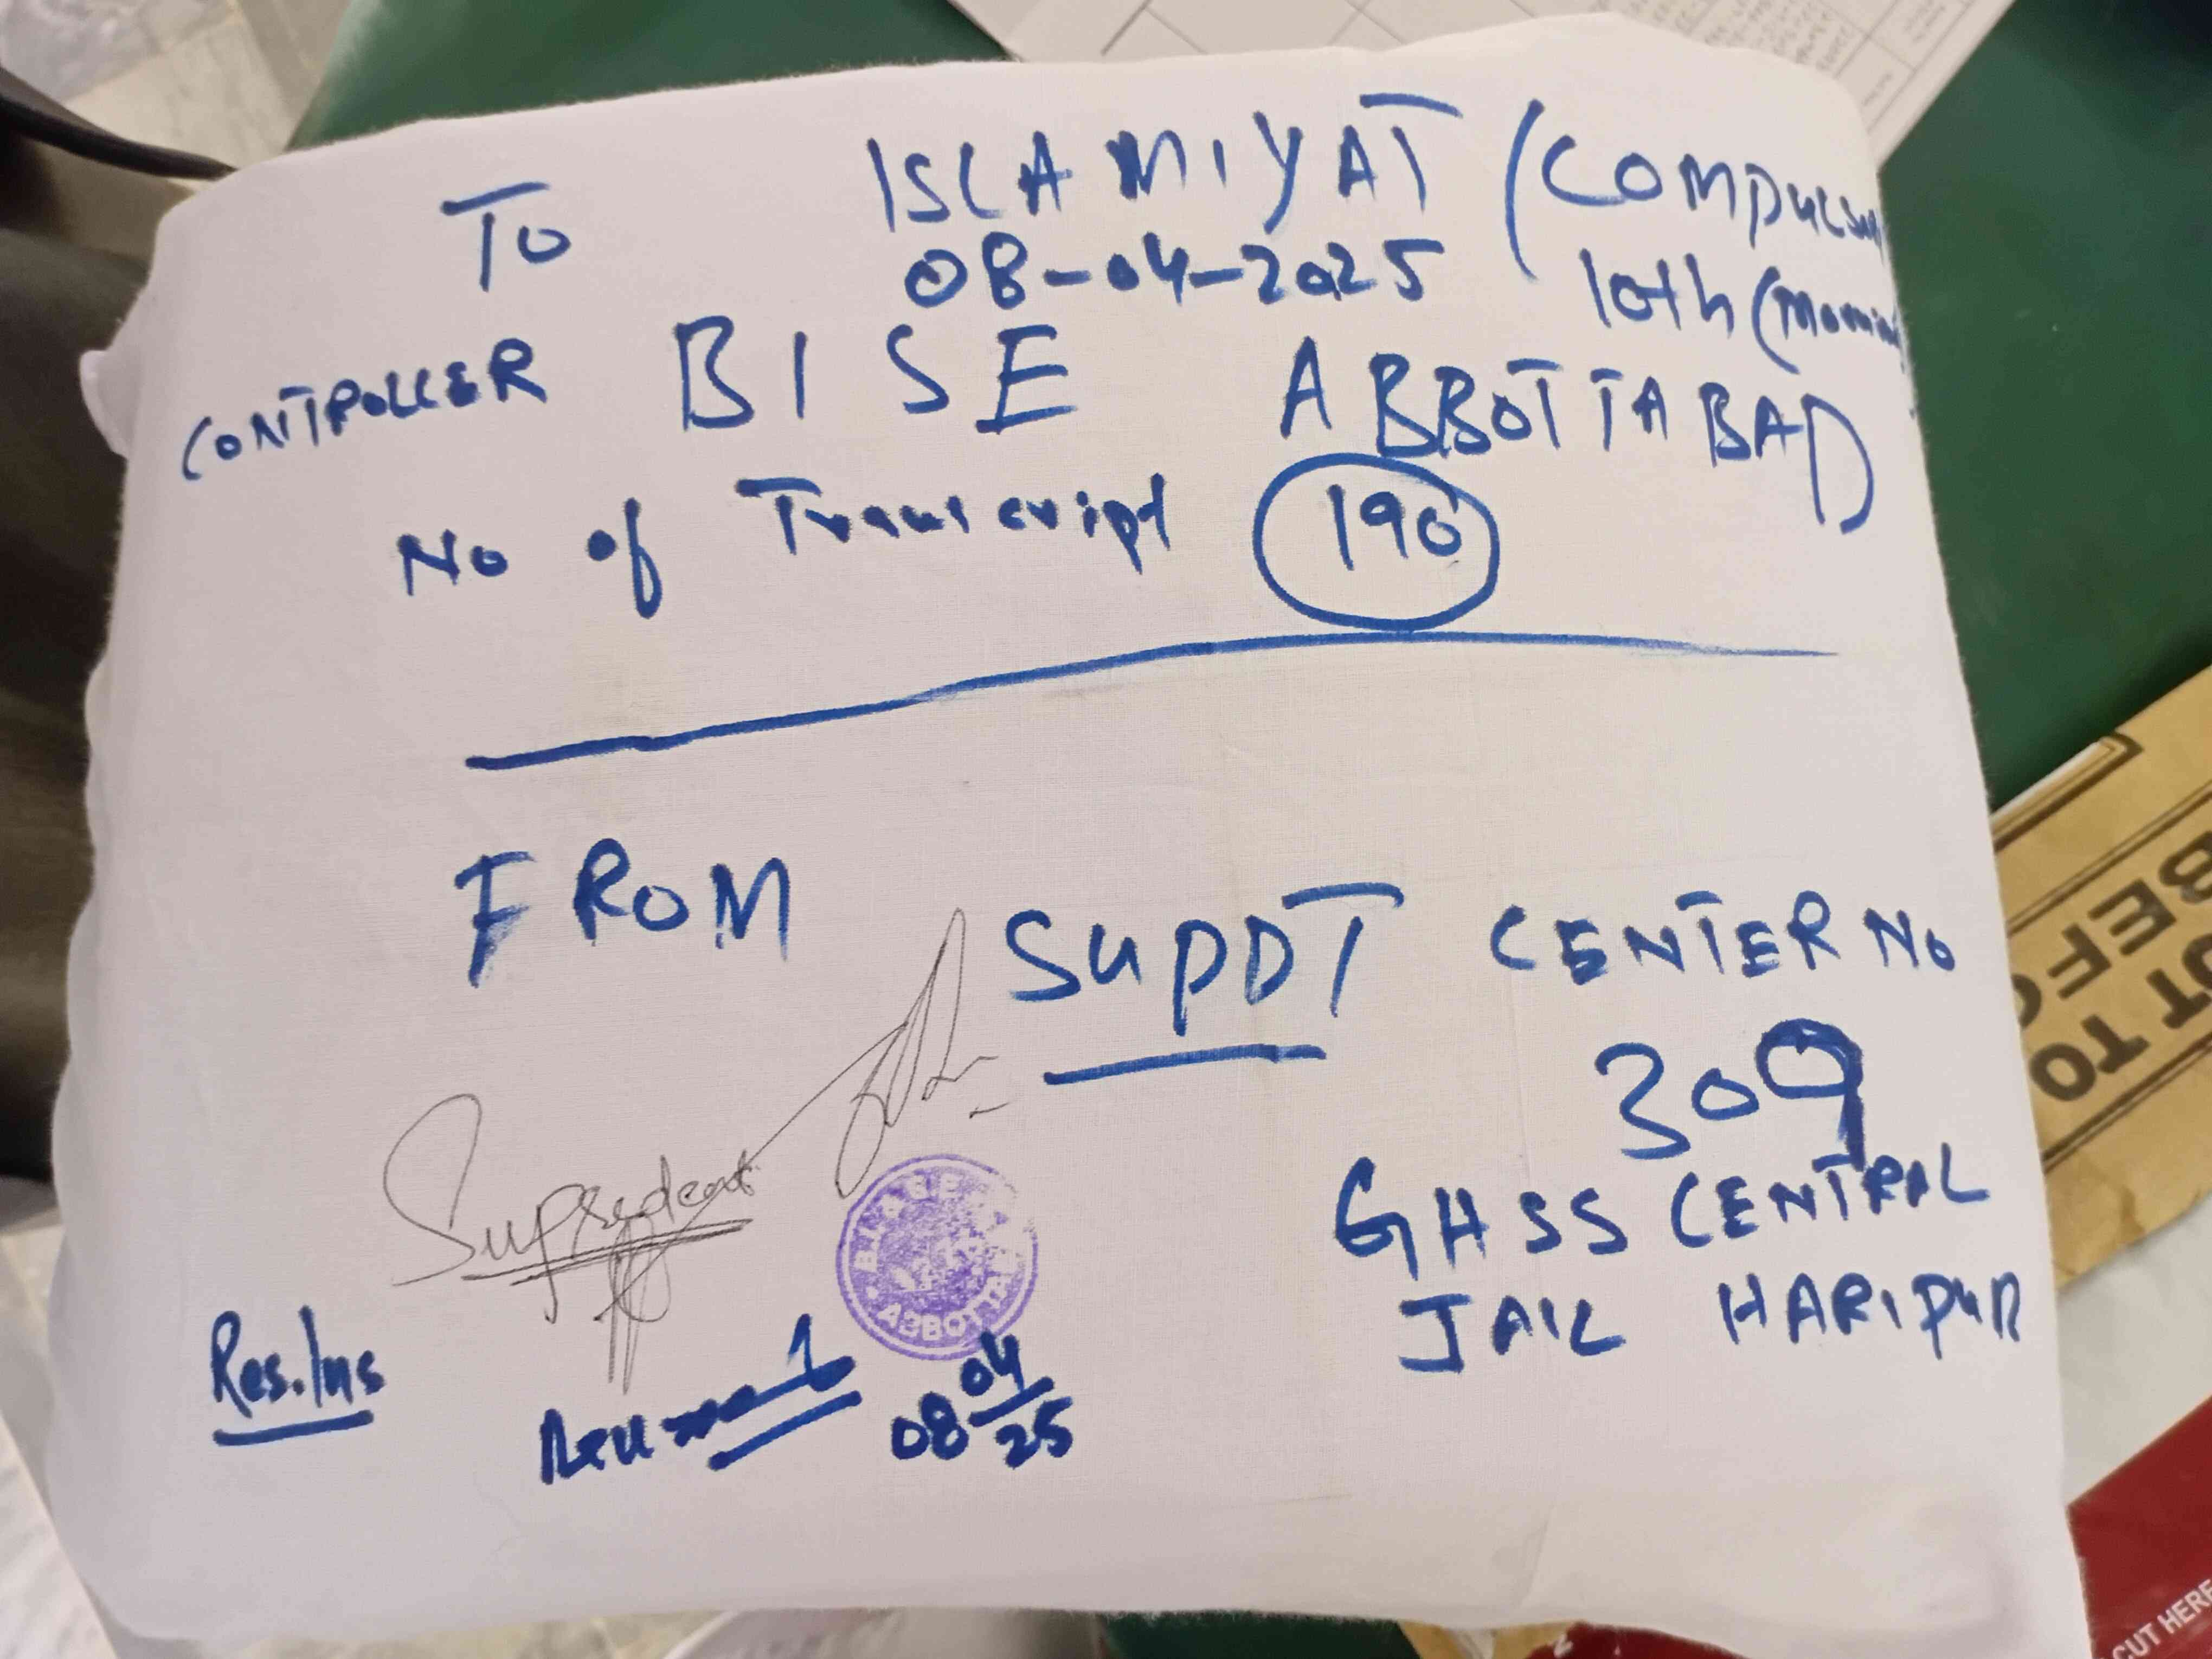 To ISLAMIYAT (COMPULSU
08-04-2025 10th (Mornin
CONTROLLER BISE ABBOTTABAD
No of Transcript 190
FROM
SUPDT CENTER No
309
GHSS CENTRAL
JAIL HARIPUR
Supredent
Res.Ins
08 04/25
ABBOTTA
OT TO
BEFO
CUT HERE